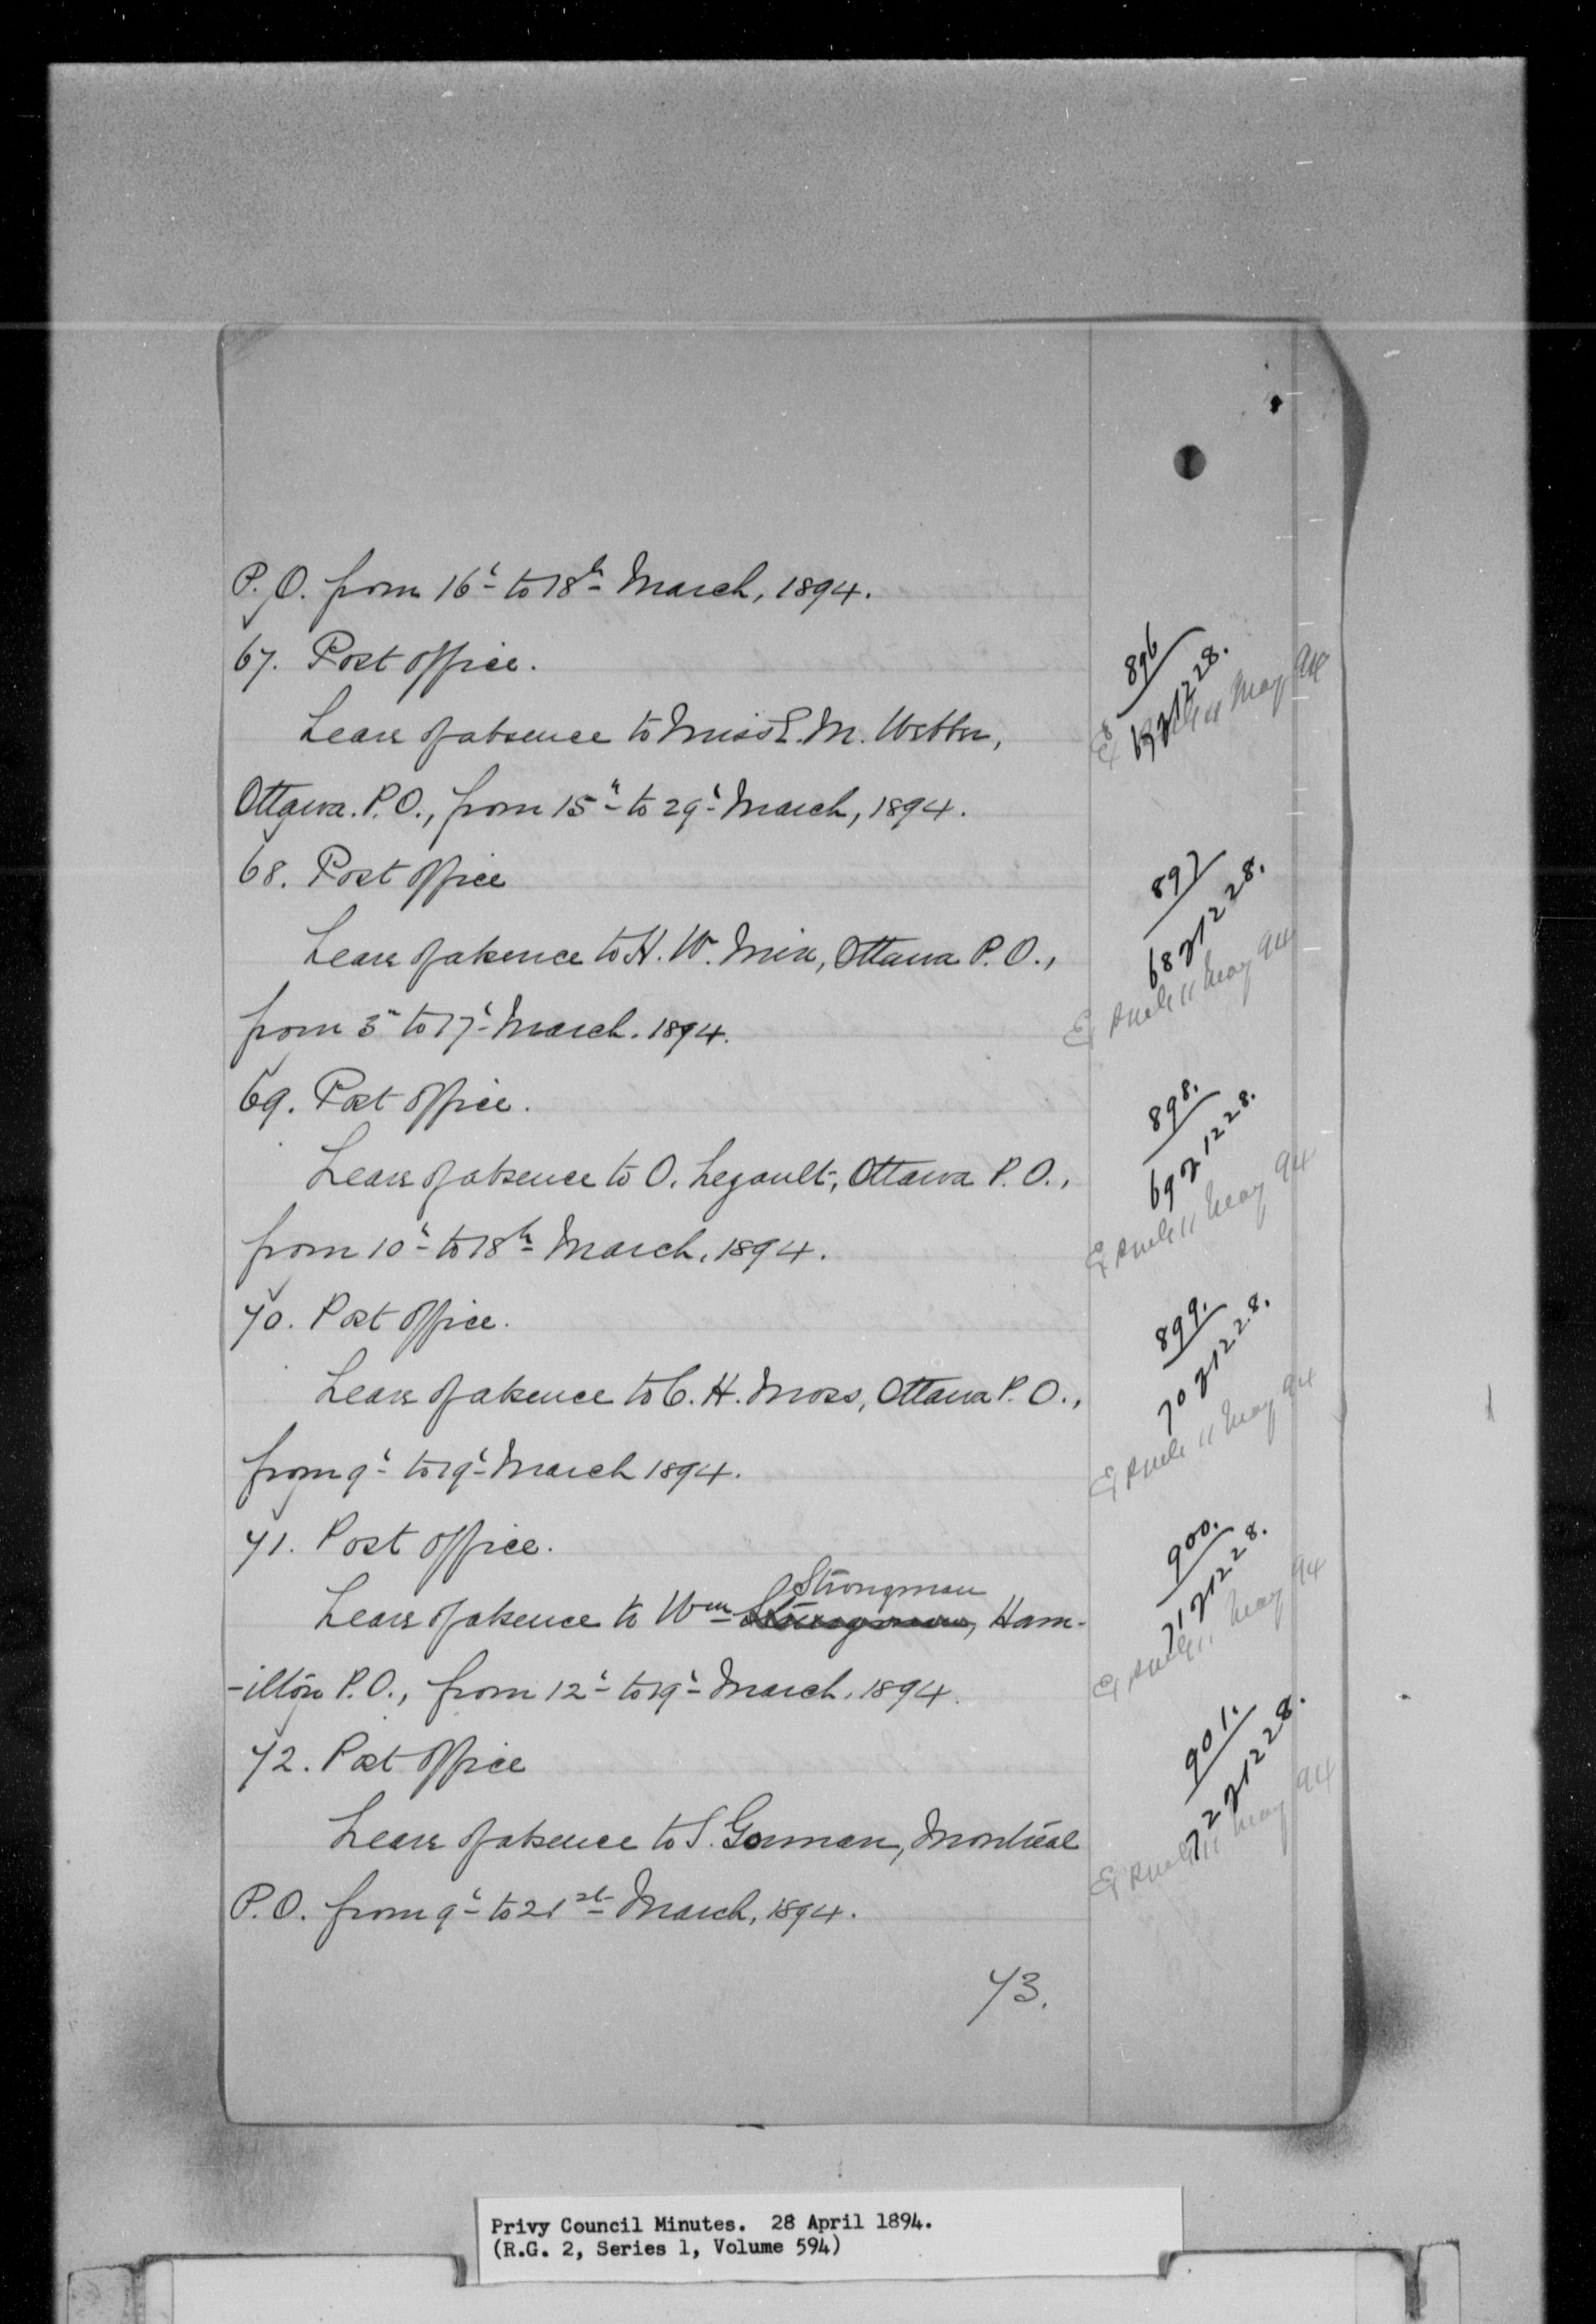 P.O. from 16th to 18th March, 1894.
67. Post office.
Leave of absence to Miss E. M. Webber,
Ottawa. P.O., from 15th to 29th March, 1894.
68. Post office
Leave of absence to H. W. Mix, Ottawa P.O.,
from 5th to 17th March. 1894.
69. Post office.
Leave of absence to O. Legault, Ottawa P.O.,
from 10th to 18th March, 1894.
70. Post office.
Leave of absence to C. H. Moss, Ottawa P.O.,
from 9th to 19th March 1894.
71. Post office.
Strongman
Leave of absence to Wm Ham-
-ilton P.O., from 12th to 19th March, 1894.
72. Post office
Leave of absence to S. Gorman, Montreal
P.O. from 9th to 21st March, 1894.
73.
896
67 1228.
11 May 94
897
68 1228.
11 May 94
898.
69 1228.
11 May 94
899.
70 1228.
11 May 94
900.
71 1228.
11 May 94
901.
72 1228.
11 May 94
Privy Council Minutes. 28 April 1894.
(R.G. 2, Series 1, Volume 594)